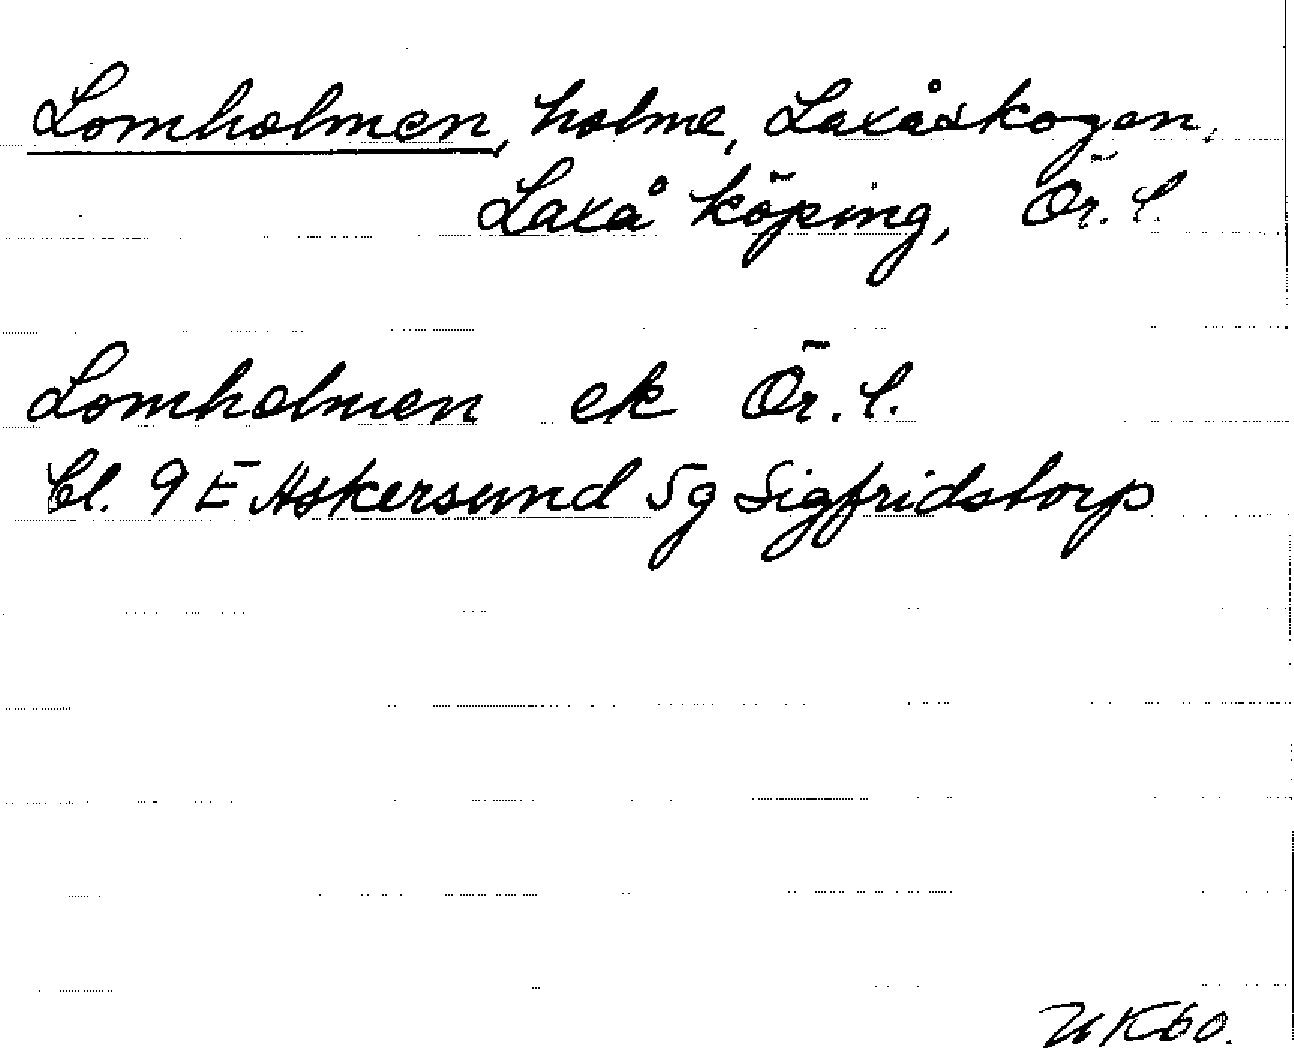 Lomholmen, holme, Laxåskogen,
Laxå köping, Ör. l.
Lomholmen ek Ör. l.
Bl. 9 E Askersund 5g Sigfridstorp
UK60.